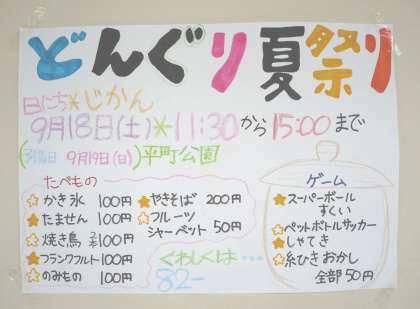 どんぐり夏祭り
日にち＊じかん
9月18日(土)＊11:30から15:00まで
9月19日(日)平町公園
たべもの
☆かき氷 100円
☆たません 100円
☆焼き鳥 2本100円
☆フランクフルト100円
☆のみもの 100円
☆やきそば 200円
☆フルーツ
シャーベット 50円
くわしくは…
82-
ゲーム
☆スーパーボール
すくい
☆ペットボトルサッカー
☆しゃてき
☆糸ひきおかし
全部50円